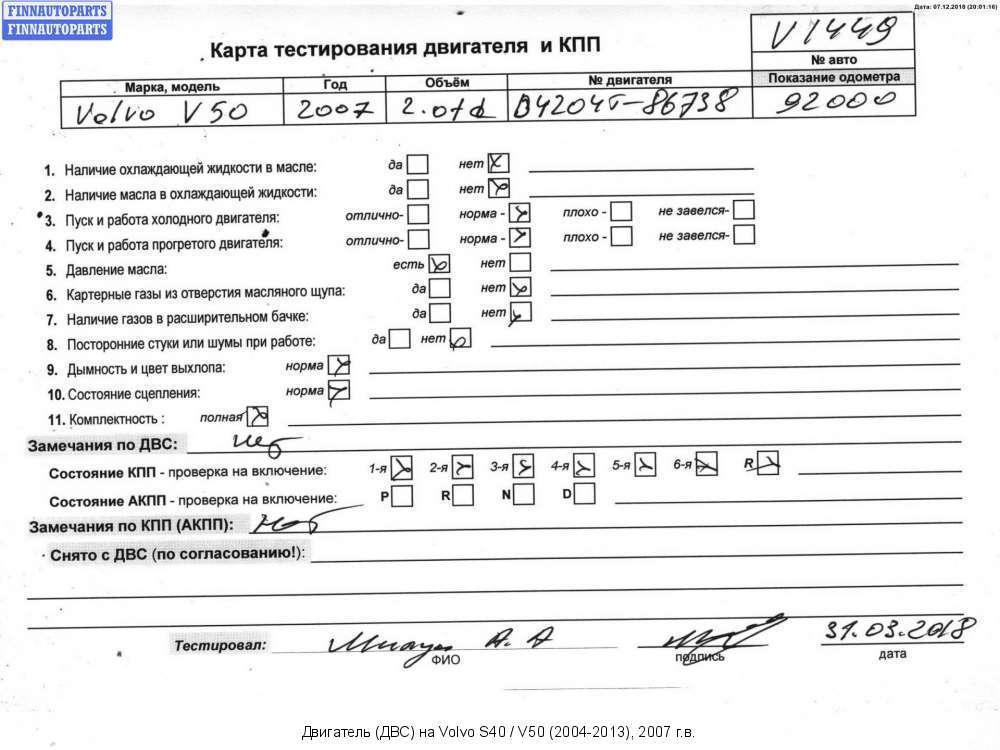 FINNAUTOPARTS
FINNAUTOPARTS
Дата: 07.12.2018 (20:01:16)
Карта тестирования двигателя и КПП
V1449
№ авто
Марка, модель Год Объём № двигателя Показание одометра
Volvo V50 2007 B4204T-86738 92000
1. Наличие охлаждающей жидкости в масле: да нет
2. Наличие масла в охлаждающей жидкости: да нет
3. Пуск и работа холодного двигателя: отлично- норма - плохо - не завелся-
4. Пуск и работа прогретого двигателя: отлично- норма - плохо - не завелся-
5. Давление масла: есть нет
6. Картерные газы из отверстия масляного щупа: да нет
7. Наличие газов в расширительном бачке: да нет
8. Посторонние стуки или шумы при работе: да нет
9. Дымность и цвет выхлопа: норма
10. Состояние сцепления: норма
11. Комплектность : полная
Замечания по ДВС: нет
Состояние КПП - проверка на включение: 1-я 2-я 3-я 4-я 5-я 6-я R
Состояние АКПП - проверка на включение: P R N D
Замечания по КПП (АКПП): нет
Снято с ДВС (по согласованию!):
Тестировал: А. А 31.03.2018
ФИО подпись дата
Двигатель (ДВС) на Volvo S40 / V50 (2004-2013), 2007 г.в.